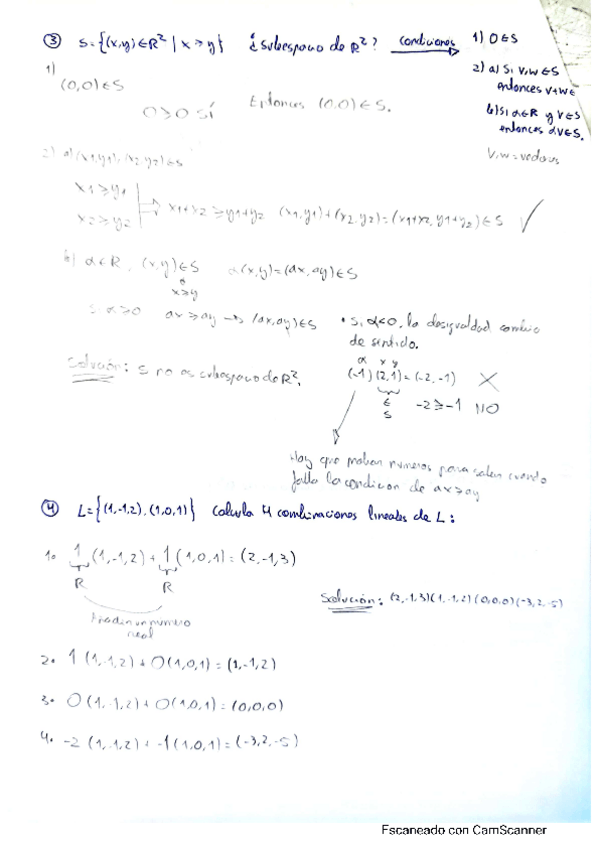 ③ S={(x,y)∈R² | x≥y} ¿Subespacio de R²? condiciones 1) 0∈S
2) a) Si v,w∈S
entonces v+w∈
b) Si α∈R y v∈S
entonces αv∈S.
v,w=vectores
1)
(0,0)∈S
0≥0 sí Entonces (0,0)∈S.
2) a) (x1,y1),(x2,y2)∈S
x1≥y1
x2≥y2
x1+x2≥y1+y2 (x1,y1)+(x2,y2)=(x1+x2,y1+y2)∈S ✓
b) α∈R, (x,y)∈S α(x,y)=(αx,αy)∈S
x≥y
Si α>0 αx≥αy → (αx,αy)∈S
• Si α<0, la desigualdad cambia
de sentido.
α x y
(-1)(2,1)=(-2,-1) X
∈
S
-2≥-1 NO
Solución: S no es subespacio de R².
Hay que probar números para saber cuando
falla la condición de αx≥αy
④ L={(1,-1,2),(1,0,1)} Calcula 4 combinaciones lineales de L:
1. 1(1,-1,2)+1(1,0,1)=(2,-1,3)
R R
número
real
Solución: (2,-1,3)(1,-1,2)(0,0,0)(-3,2,-5)
2. 1(1,-1,2)+0(1,0,1)=(1,-1,2)
3. 0(1,-1,2)+0(1,0,1)=(0,0,0)
4. -2(1,-1,2)+-1(1,0,1)=(-3,2,-5)
Escaneado con CamScanner